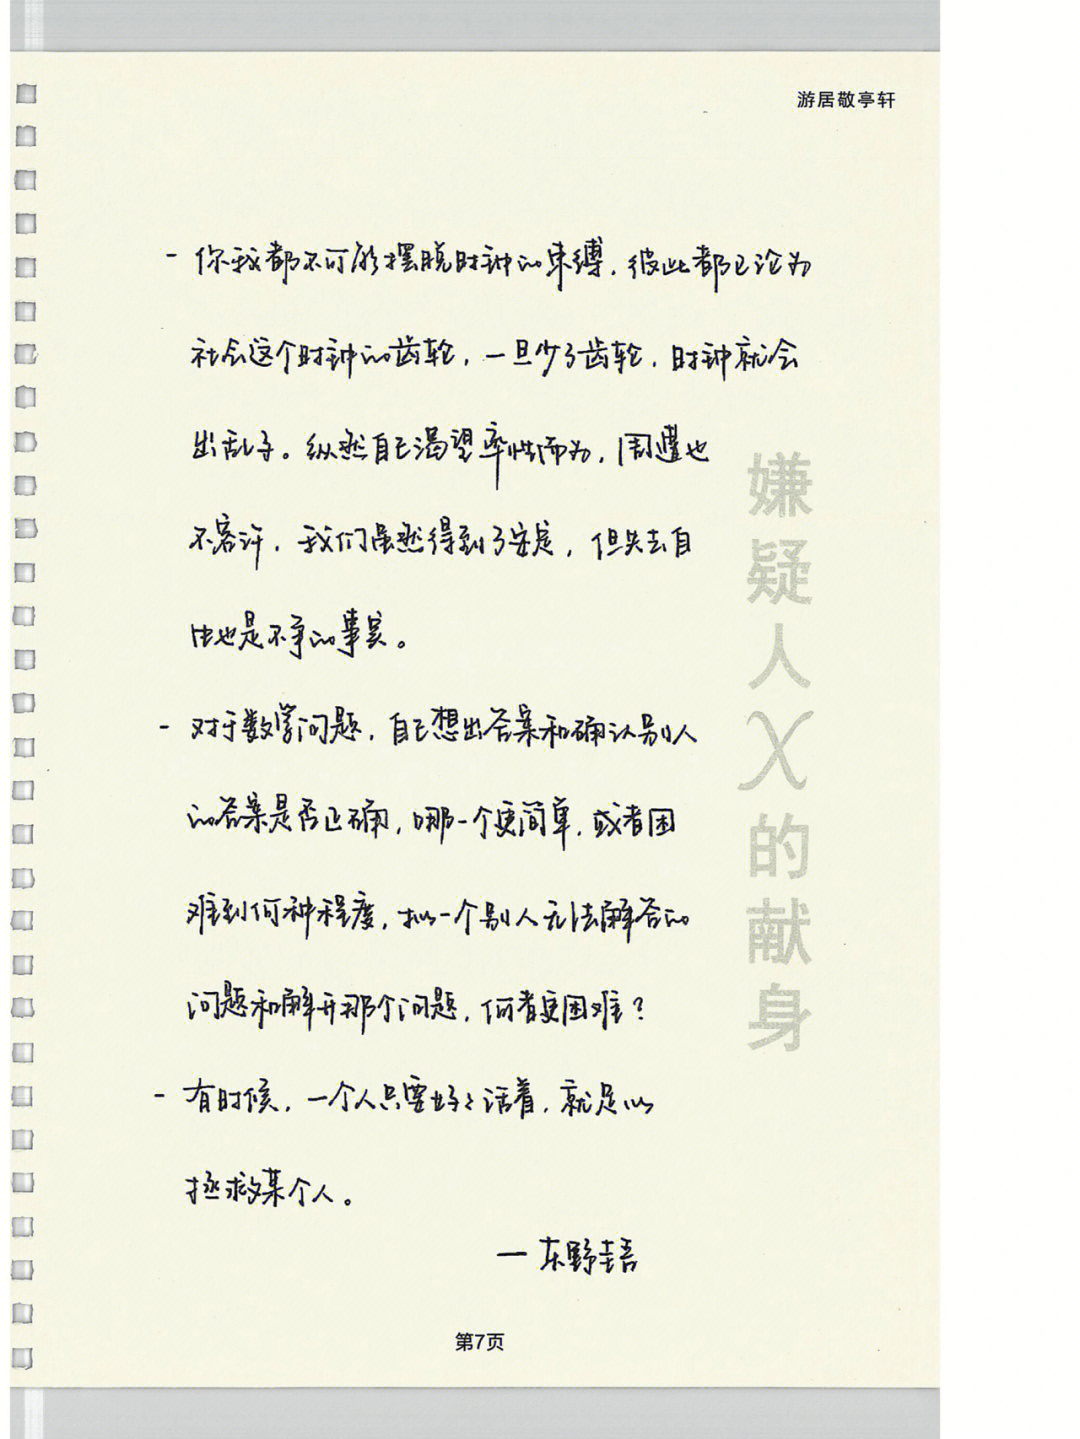 游居敬亭轩
- 你我都不可能摆脱时钟的束缚，彼此都已沦为
社会这个时钟的齿轮，一旦少了齿轮，时钟就会
出乱子。纵然自己渴望率性而为，周遭也
不容许，我们虽然得到了安定，但失去自
由也是不争的事实。
- 对于数学问题，自己想出答案和确认别人
的答案是否正确，哪一个更简单，或者困
难到何种程度，拟一个别人无法解答的
问题和解开那个问题，何者更困难？
- 有时候，一个人只要好好活着，就足以
拯救某个人。
— 东野圭吾
嫌疑人X的献身
第7页